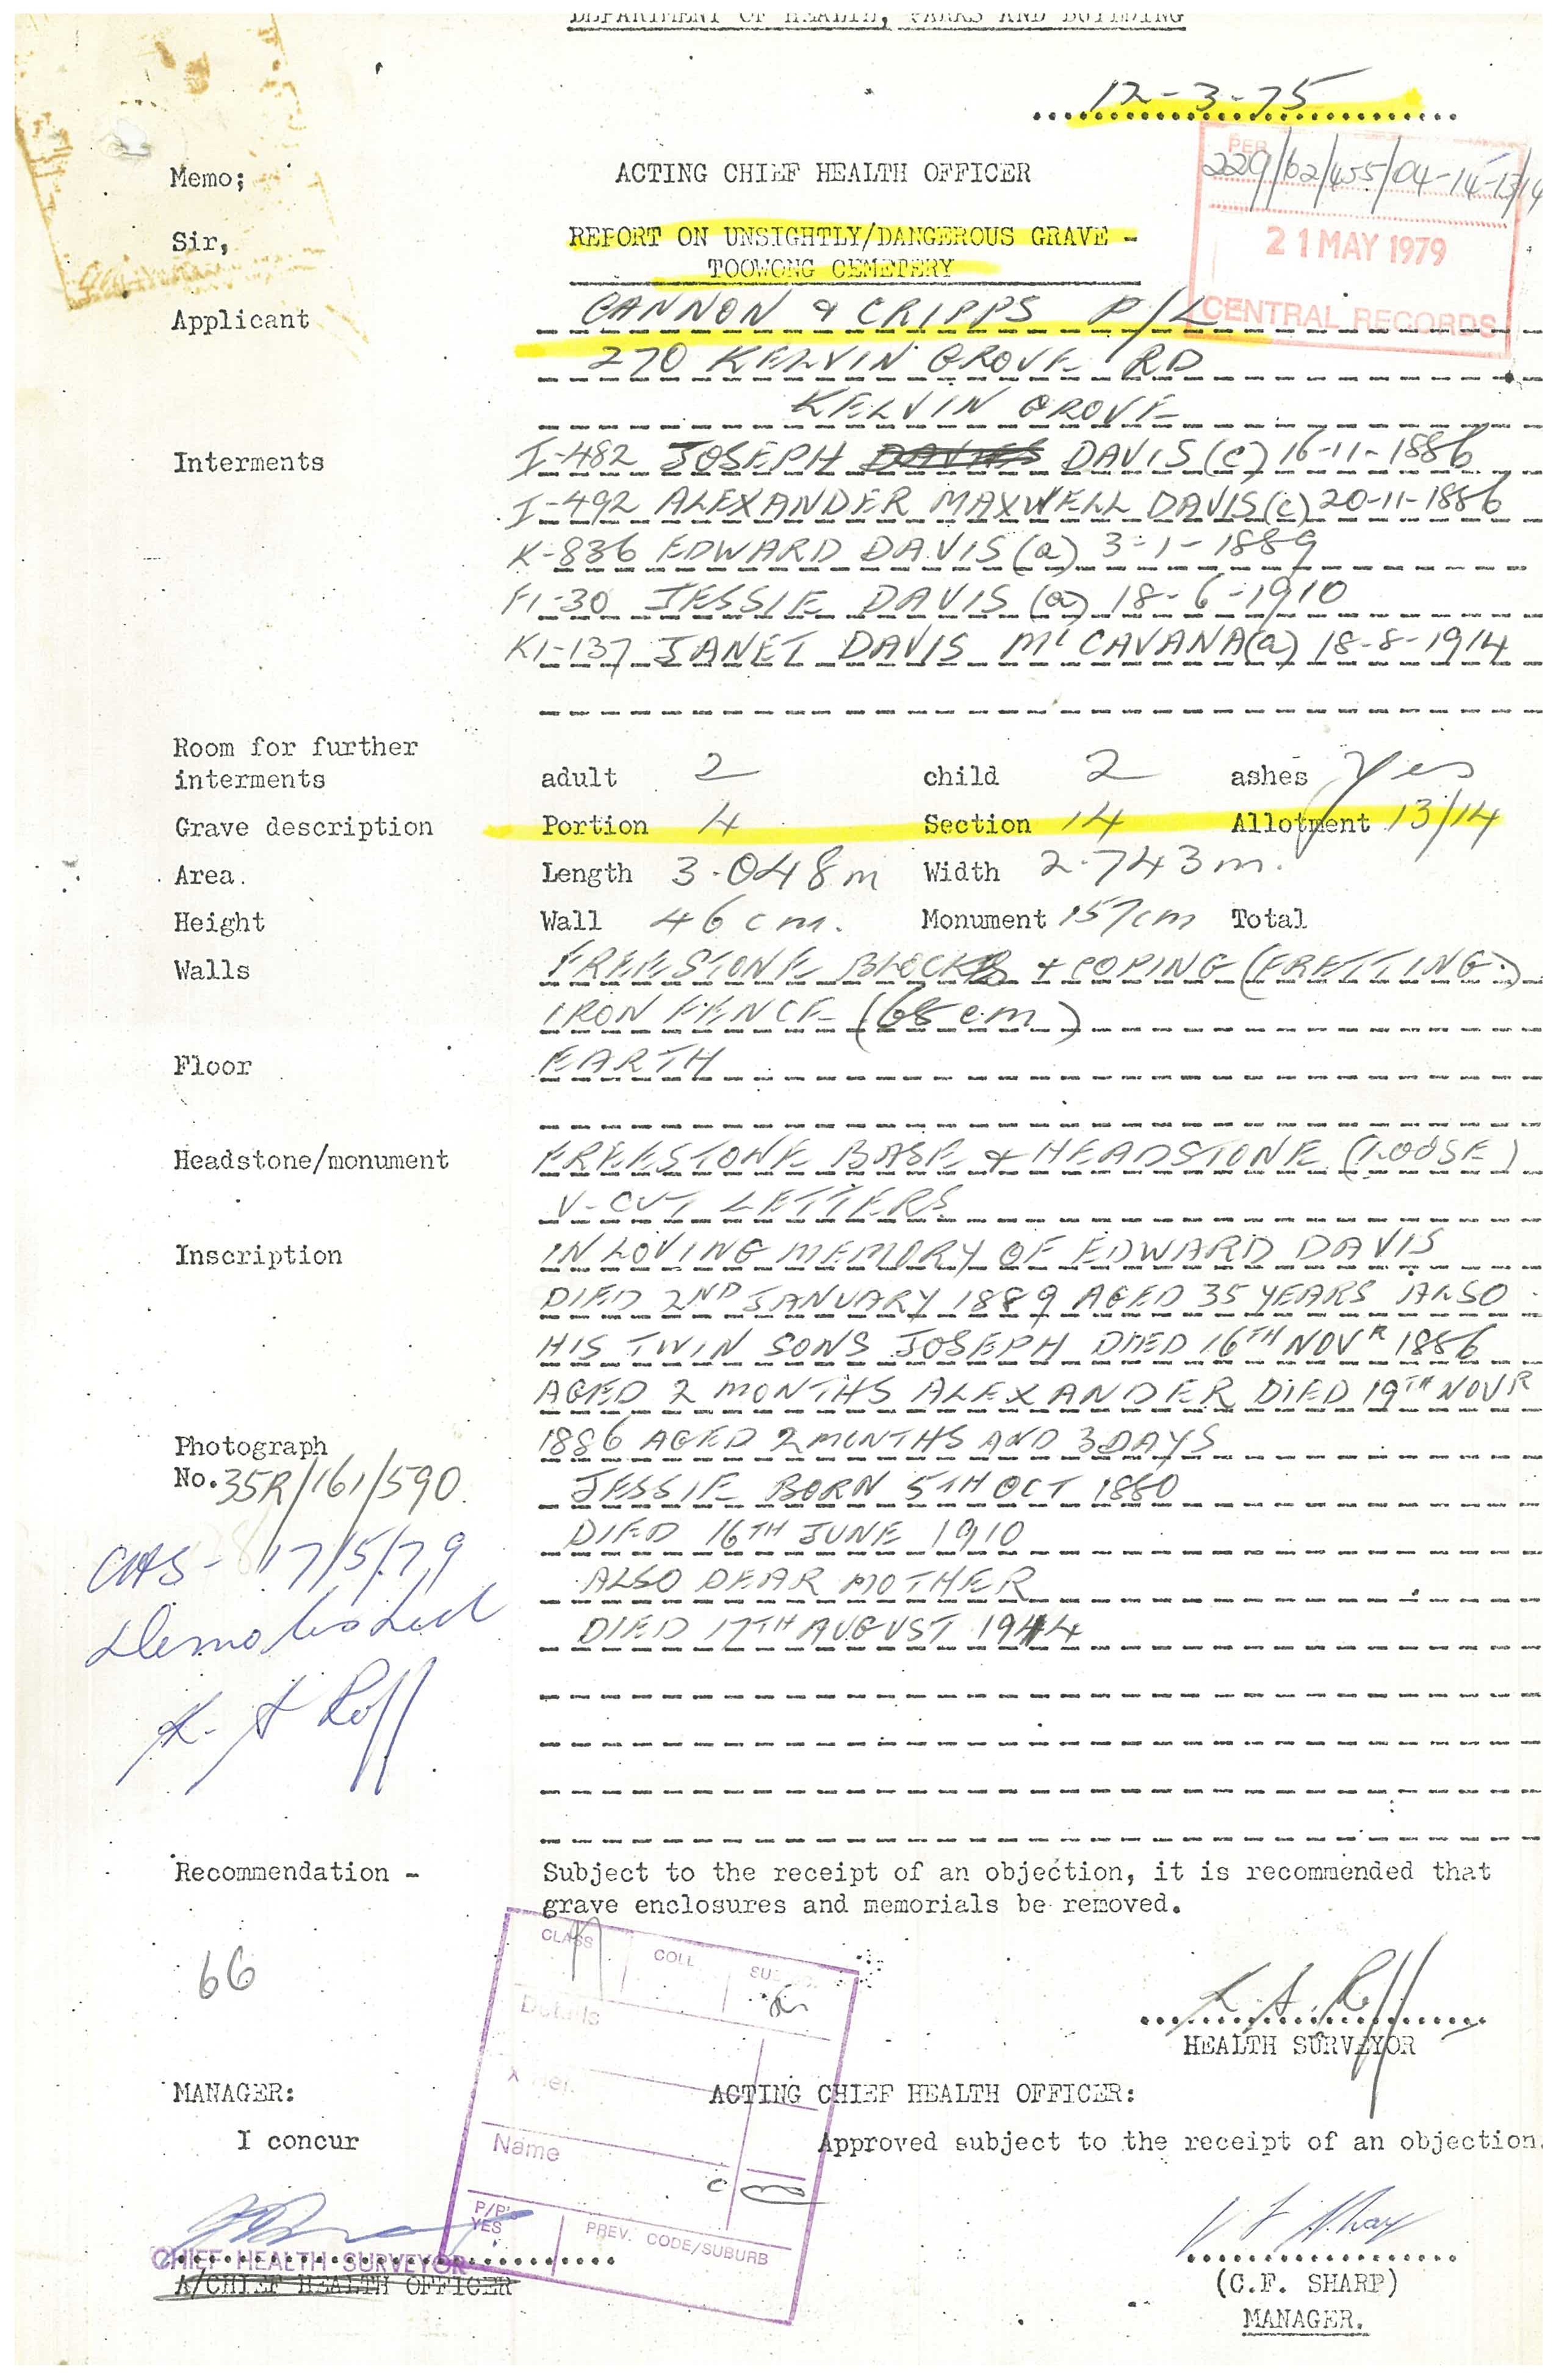 DEPARTMENT OF HEALTH, PARKS AND BUILDING
12-3-75
Memo; ACTING CHIEF HEALTH OFFICER
PER
229/62/455/04-14-13/14
21 MAY 1979
CENTRAL RECORDS
Sir, REPORT ON UNSIGHTLY/DANGEROUS GRAVE -
TOOWONG CEMETERY
Applicant CANNON & CRIPPS P/L
270 KELVIN GROVE RD
KELVIN GROVE
Interments I-482 JOSEPH DAVIS (c) 16-11-1886
I-492 ALEXANDER MAXWELL DAVIS (c) 20-11-1886
K-836 EDWARD DAVIS (a) 3-1-1889
F1-30 JESSIE DAVIS (a) 18-6-1910
K1-137 JANET DAVIS McCAVANA (a) 18-8-1914
Room for further
interments adult 2 child 2 ashes Yes
Grave description Portion 4 Section 14 Allotment 13/14
Area. Length 3.048m Width 2.743m.
Height Wall 46cm. Monument 157cm Total
Walls FREESTONE BLOCKS + COPING (FRETTING.)
IRON FENCE (68cm)
Floor EARTH
Headstone/monument FREESTONE BASE & HEADSTONE (LOOSE)
V-CUT LETTERS
Inscription IN LOVING MEMORY OF EDWARD DAVIS
DIED 2ND JANUARY 1889 AGED 35 YEARS ALSO
HIS TWIN SONS JOSEPH DIED 16TH NOVR 1886
AGED 2 MONTHS ALEXANDER DIED 19TH NOVR
1886 AGED 2 MONTHS AND 3 DAYS
Photograph
No. 35R/161/590.
JESSIE BORN 5TH OCT 1880
DIED 16TH JUNE 1910
ALSO DEAR MOTHER
DIED 17TH AUGUST 1914
CHS - 17/5/79
Demolished
K. A Roff
Recommendation - Subject to the receipt of an objection, it is recommended that
grave enclosures and memorials be removed.
66
CLASS COLL SUB NO.
Details
X Ref.
Name
P/P YES PREV. CODE/SUBURB
K. A. Roff
HEALTH SURVEYOR
MANAGER: ACTING CHIEF HEALTH OFFICER:
I concur Approved subject to the receipt of an objection.
CHIEF HEALTH SURVEYOR
A/CHIEF HEALTH OFFICER
(C.F. SHARP)
MANAGER.